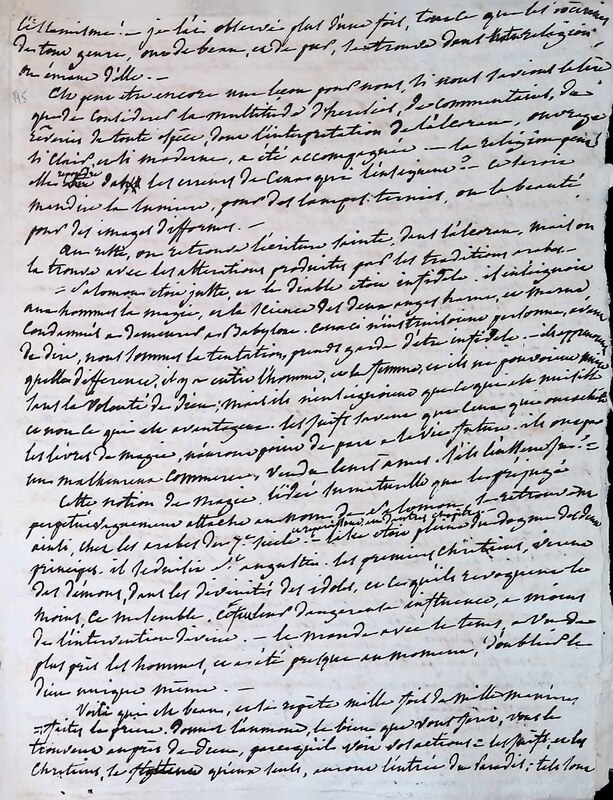 l'islamisme! – je l'ai observé plus d'une fois, tout ce que les
de tout genre, ont de beau, et de pur, se trouve dans notre religion
ou émane d'elle. –
Ce peut être encore une leçon pour nous, si nous savions la lire
que de considérer la multitude d'hérésies, de commentaires, de
rêveries de toute espèce, dont l'interprétation de l'alcoran, ouvrage
si clair, et si moderne, a été accompagnée – la religion peut
elle répondre des erreurs de ceux qui l'enseignent? – ce seroit
maudire la lumière, pour des lampes ternies, ou la beauté
pour des images difformes. –
Au reste, on retrouve l'écriture sainte, dans l'alcoran, mais on
la trouve avec les altérations produites par les traditions arabes
= Salomon étoit juste, et le diable étoit infidèle. il enseignoit
aux hommes la magie, et la science des deux anges harut, et marut
condamnés a demeurer a Babylone. ceux ci n'instruisent personne, avant
de dire, nous sommes la tentation, prends garde d'être infidèle –
quelle différence, il y a entre l'homme et la femme, et ils ne peuvent
sans la volonté de dieu; mais ils n'enseignent que ce qui est nuisible
et non ce qui est avantageux. les juifs savent que ceux qui ont acheté
les livres de magie, n'auront point de part a la vie future. ils ont
un malheureux commerce, vendu leurs âmes. s'ils l'eussent su! =
Cette notion de magie, l'idée surnaturelle que le préjugé
perpétue vaguement attaché au nom de Salomon, se retrouvoit
ainsi, chez les arabes du 7e siècle – étoit pleine du dogme des deux
principes. il séduisit St augustin. les premiers chrétiens, virent
des démons, dans les divinités des idoles, et ce qu'ils révoquent le
moins, ce me semble. c'est leur dangereuse influence, a moins
de l'intervention divine. – le monde avec le tems, a vu de
plus près les hommes, et a été presque au moment, d'oublier le
dieu unique même. –
Voilà qui est beau, et se répète mille fois de mille manières
= faites la prière. donnez l'aumône, le bien que vous ferez, vous le
trouverez auprès de Dieu, parcequ'il voit vos actions = les juifs, et les
chrétiens, se qu'eux seuls, auront l'entrée du Paradis; tels sont